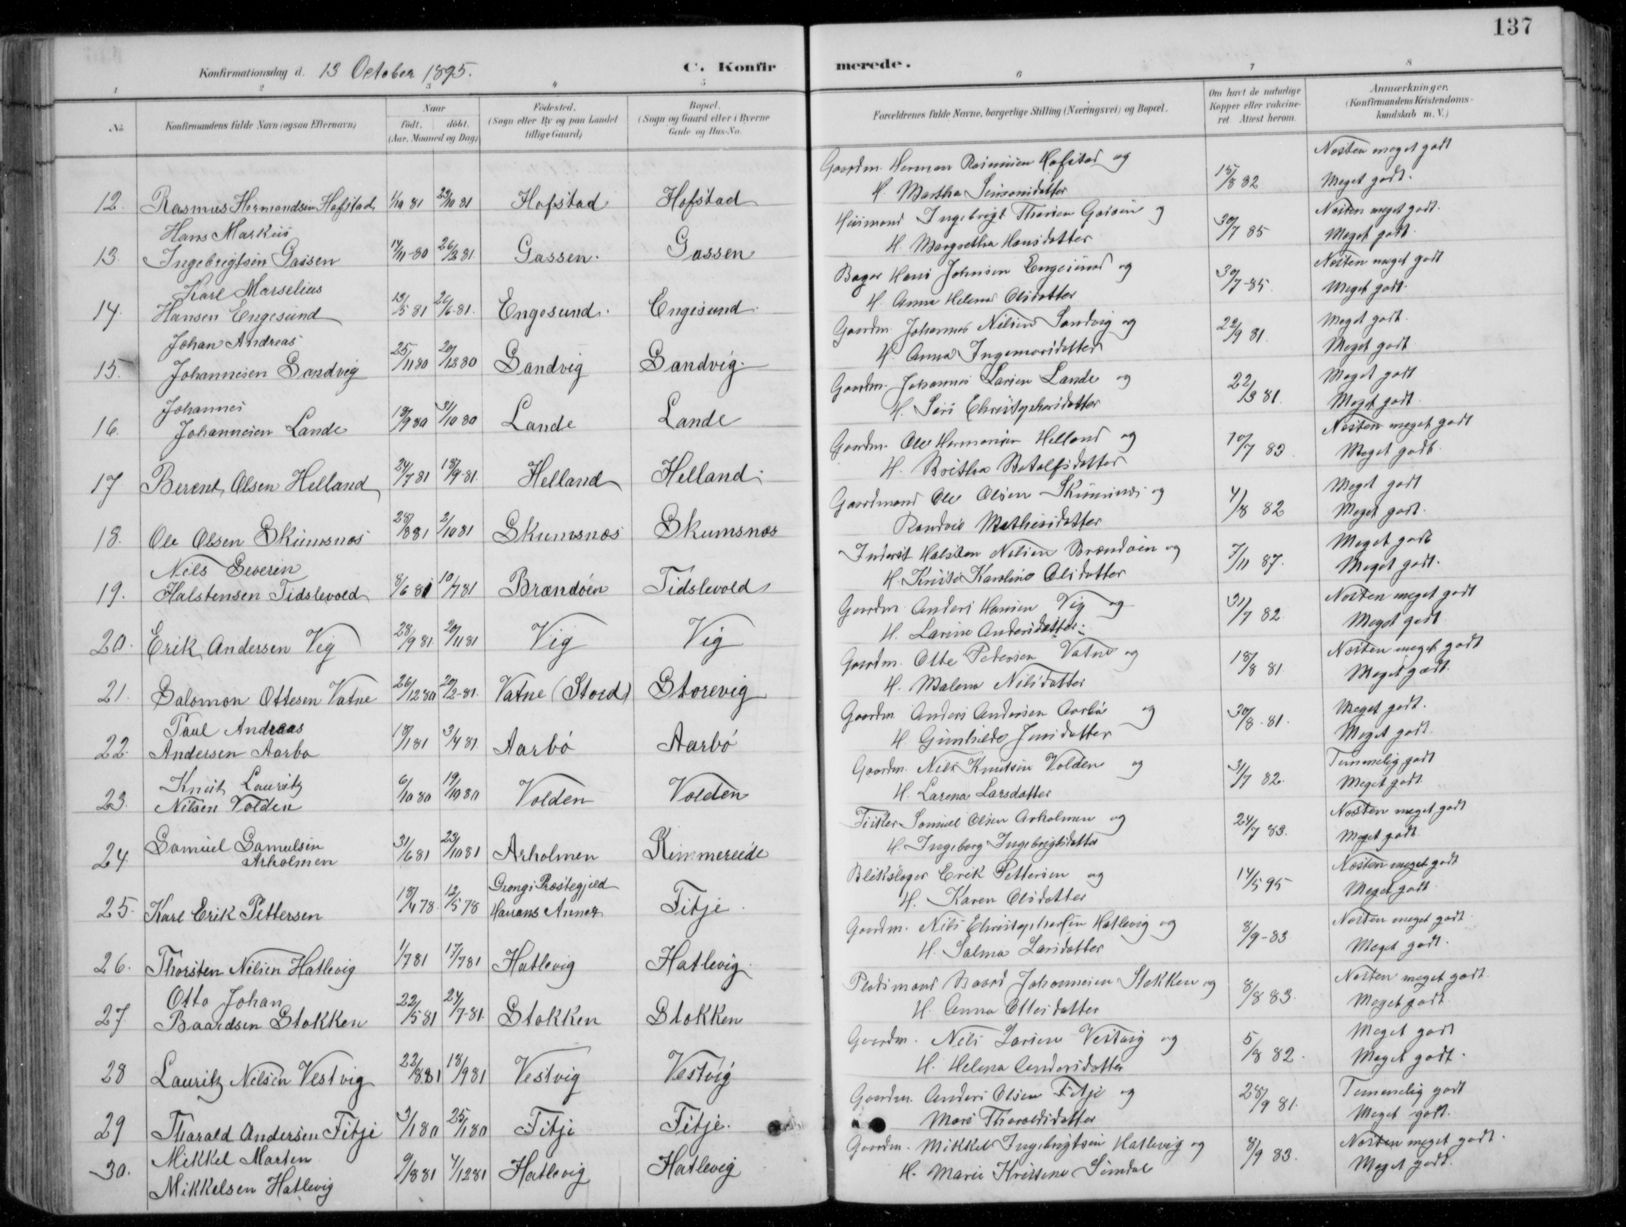 137
Konfirmationsdag d. 13 October 1895.
C. Konfirmerede.
1 2 3 4 5 6 7 8
No.
Konfirmandens fulde Navn (ogsaa Efternavn)
Naar
født. døbt.
(Aar, Maaned og Dag)
Fødested.
(Sogn eller By og paa Landet tillige Gaard)
Bopæl.
(Sogn og Gaard eller i Byerne Gade og Hus-No.
Forældrenes fulde Navne, borgerlige Stilling (Næringsvei) og Bopæl.
Om havt de naturlige Kopper eller vaccineret Attest herom.
Anmærkninger.
(Konfirmandens Kristendomskundskab m. V.)
12. Rasmus Hermandsen Hofstad 1/10 81 23/10 81 Hofstad Hofstad
Gaardm. Herman Rasmussen Hofstad og H. Martha Simonsdatter 15/8 82 Næsten meget godt Meget godt.
13. Hans Markus Ingebrigtsen Gaasen 17/11-80 26/3 81 Gassen. Gassen
Huusmand Ingebrigt Thorsen Gaasen og H. Margretha Hansdatter 30/7 85 Næsten meget godt. Meget godt.
14. Karl Marselius Hansen Engesund 13/5 81 26/6-81. Engesund. Engesund
Bager Hans Johnsen Engesund og H. Anna Helena Olsdatter 30/7-85. Næsten meget godt Meget godt.
15. Johan Andreas Johannesen Sandvig 25/11 80 20/12 80 Sandvig Sandvig.
Gaardm. Johannes Nilsen Sandvig og H. Anna Ingemorsdatter 22/9 81. Meget godt. Meget godt
16. Johannes Johannesen Lande 13/9 80 31/10 80 Lande Lande
Gaardm. Johannes Larsen Lande og H. Siri Christophersdatter 22/3 81. Meget godt Meget godt.
17 Berent Olsen Helland 24/7 81 18/9-81. Helland Helland.
Gaardm. Ole Hermansen Helland og H. Britha Botolfsdatter 10/7 83. Næsten meget godt Meget godt.
18. Ole Olsen Skumsnæs 28/8 81 2/10 81 Skumsnæs Skumsnæs
Gaardmand Ole Olsen Skumsnæs og Randvei Mathiasdatter 4/8 82 Meget godt Meget godt.
19. Nils Severin Halstensen Tidslevold 8/6 81 10/7 81 Brandøen Tidslevold
Inderst Halsten Nilsen Brandøen og H. Kristi Karoline Olsdatter 7/11 87. Meget godt Meget godt.
20. Erik Andersen Vig 28/9 81 20/11 81 Vig Vig
Gaardm. Anders Hansen Vig og H. Larine Andersdatter. 31/7 82 Næsten meget godt Meget godt
21. Salomon Ottesen Vatne 26/12 80 20/2-81. Vatne (Stord) Storevig
Gaardm. Otte Pedersen Vatne og H. Malena Nilsdatter 18/8 81 Næsten meget godt Meget godt.
22. Paul Andreas Andersen Aarbø 19/1 81 3/4 81 Aarbø Aarbø
Gaardm Anders Andersen Aarbø og H. Gunhilde Jonsdatter 30/8-81. Meget godt. Meget godt.
23. Knut Lauritz Nilsen Volden 6/10 80 19/10 80 Volden Volden
Gaardm. Nils Knutsen Volden og H. Larena Larsdatter 31/7 82. Temmelig godt Meget godt
24. Samuel Samulsen Arholmen 31/6 81 23/10 81 Arholmen Rimmereide
Fisker Samuel Olsen Arholmen og H. Ingeborg Ingebrigtsdatter 24/7 83. Næsten meget godt Meget godt
25. Karl Erik Pettersen 19/4 78. 12/5 78 Grongs Præstegjeld Harans Annex Fitje
Blikslager Erik Pettersen og H. Karen Olsdatter 14/5 95 Næsten meget godt Meget godt.
26. Thorsten Nilsen Hatlevig 1/7 81 17/7 81 Hatlevig Hatlevig.
Gaardm. Nils Christophersen Hatlevig og H. Salma Larsdatter 8/9-83 Næsten meget godt. Meget godt.
27 Otto Johan Baardsen Stokken 22/5 81 24/7-81. Stokken Stokken
Pladsmand Baard Johannesen Stokken og H. Anna Ottesdatter 8/8 83. Næsten meget godt. Meget godt.
28 Lauritz Nilsen Vestvig 22/8 81 18/9 81 Vestvig Vestvig
Gaardm. Nils Larsen Vestvig og H. Helena Andersdatter 5/8 82. Meget godt Meget godt.
29 Tharald Andersen Fitje 3/1 80 25/1 80 Fitje Fitje.
Gaardm. Anders Olsen Fitje og Mari Tharaldsdatter 28/9 81. Temmelig godt Meget godt.
30. Mikkel Marten Mikkelsen Hatlevig 9/8 81 4/12 81 Hatlevig Hatlevig
Gaardm. Mikkel Ingebrigtsen Hatlevig og H. Marie Kristine Simdal 8/9 83. Næsten meget godt. Meget godt.